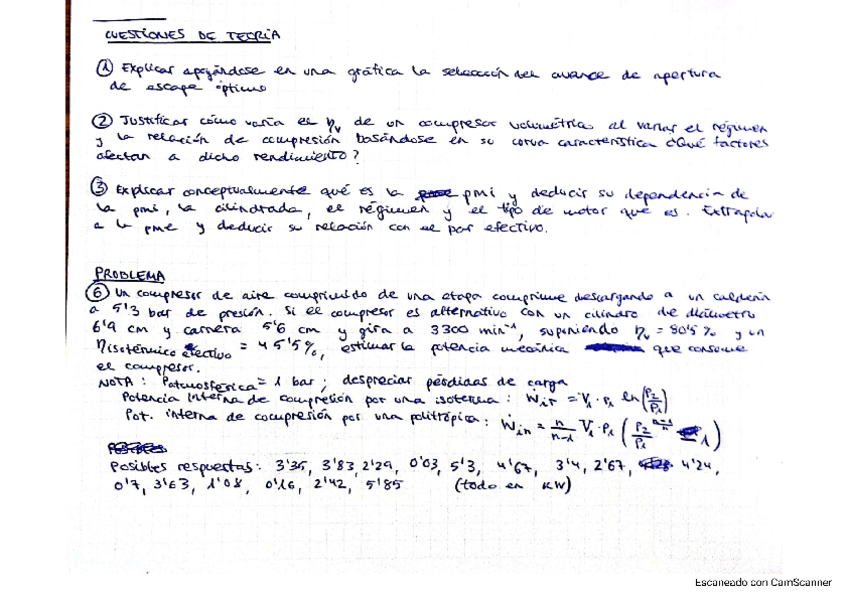 CUESTIONES DE TEORÍA
① Explicar apoyándose en una gráfica la selección del avance de apertura
de escape óptimo
② Justificar cómo varía el ηv de un compresor volumétrico al variar el régimen
y la relación de compresión basándose en su curva característica ¿Qué factores
afectan a dicho rendimiento?
③ Explicar conceptualmente qué es la pmi y deducir su dependencia de
la pmi, la cilindrada, el régimen y el tipo de motor que es. Extrapola
a la pme y deducir su relación con el par efectivo.
PROBLEMA
⑥ Un compresor de aire comprimido de una etapa comprime descargando a un calderín
a 5'3 bar de presión. Si el compresor es alternativo con un cilindro de diámetro
6'9 cm y carrera 5'6 cm y gira a 3300 min⁻¹, suponiendo ηv = 80'5 % y un
ηisotérmico efectivo = 45'5%, estimar la potencia mecánica que consume
el compresor.
NOTA: Patmosférica = 1 bar; despreciar pérdidas de carga
Potencia interna de compresión por una isoterma: ẆiT = V̇₁ · p₁ ln(P₂/P₁)
Pot. interna de compresión por una politrópica: Ẇin = n/(n-1) V̇₁ · P₁ (P₂/P₁^((n-1)/n) - 1)
Posibles respuestas: 3'35, 3'83, 2'29, 0'03, 5'3, 4'67, 3'4, 2'67, 4'24,
0'7, 3'63, 1'08, 0'16, 2'42, 5'85 (todo en KW)
Escaneado con CamScanner